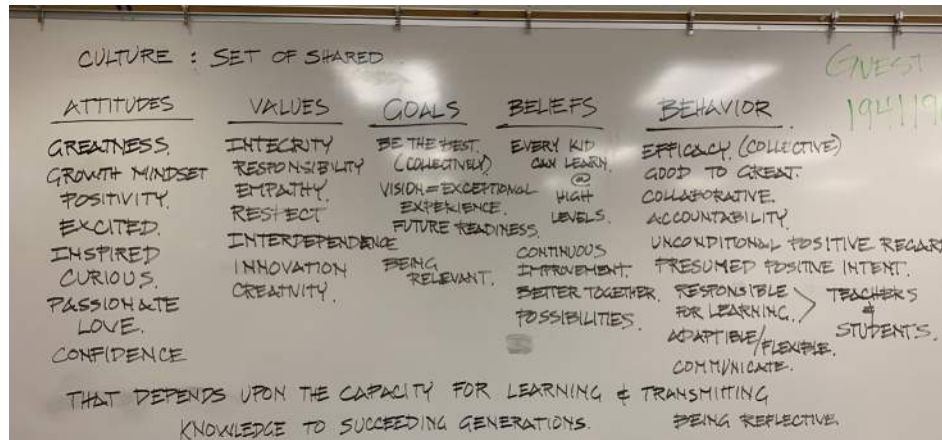 CULTURE : SET OF SHARED
GUEST
194119
ATTITUDES
GREATNESS.
GROWTH MINDSET
POSITIVITY.
EXCITED.
INSPIRED
CURIOUS.
PASSIONATE
LOVE.
CONFIDENCE
VALUES
INTEGRITY
RESPONSIBILITY
EMPATHY.
RESPECT
INTERDEPENDENCE
INNOVATION
CREATIVITY.
GOALS
BE THE BEST.
(COLLECTIVELY)
VISION = EXCEPTIONAL
EXPERIENCE.
FUTURE READINESS.
BEING
RELEVANT.
BELIEFS
EVERY KID
CAN LEARN
@
HIGH
LEVELS.
CONTINUOUS
IMPROVEMENT.
BETTER TOGETHER.
POSSIBILITIES.
BEHAVIOR
EFFICACY. (COLLECTIVE)
GOOD TO GREAT.
COLLABORATIVE.
ACCOUNTABILITY.
UNCONDITIONAL POSITIVE REGARD
PRESUMED POSITIVE INTENT.
RESPONSIBLE
FOR LEARNING.
TEACHERS
&
STUDENTS.
ADAPTIBLE/FLEXIBLE.
COMMUNICATE.
BEING REFLECTIVE.
THAT DEPENDS UPON THE CAPACITY FOR LEARNING & TRANSMITTING
KNOWLEDGE TO SUCCEEDING GENERATIONS.